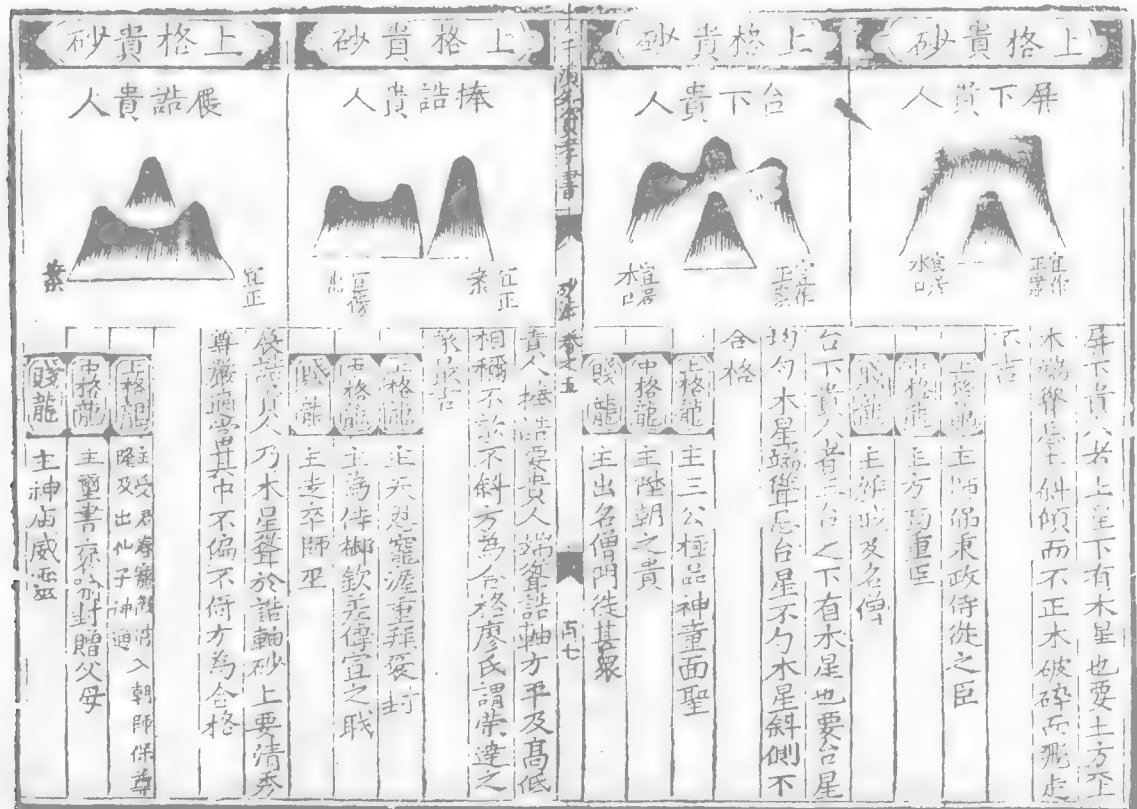 上格貴砂
屏下貴人
宜作正案
宜居水口
屏下貴人者土星下有木星也要土方平
木端聳忌土斜傾而不正木破碎而飛走
不吉
上格龍
主師保秉政侍從之臣
中格龍
主方面重臣
賤龍
主及名僧
上格貴砂
台下貴人
宜作正案
宜居水口
台下貴人者三台之下有木星也要台星
均勻木星端聳忌台星不勻木星斜側不
合格
上格龍
主三公極品神童面聖
中格龍
主陞朝之貴
賤龍
主出名僧門徒甚衆
砂法
上格貴砂
捧誥貴人
宜正案
宜傍
貴人捧誥要貴人端聳誥軸方平及高低
相稱不欹不斜方為合格廖氏謂榮達之
上格龍
主天恩寵渥重拜褒封
中格龍
主為侍郎欽差傳宣之職
賤龍
主走卒師巫
上格貴砂
展誥貴人
宜正案
展誥貴人乃木星聳於誥軸砂上要清秀
尊嚴適當其中不偏不倚方為合格
上格龍
主受君眷寵入朝師保尊
隆及出仙子神通
中格龍
主璽書褒封贈父母
賤龍
主神廟威靈